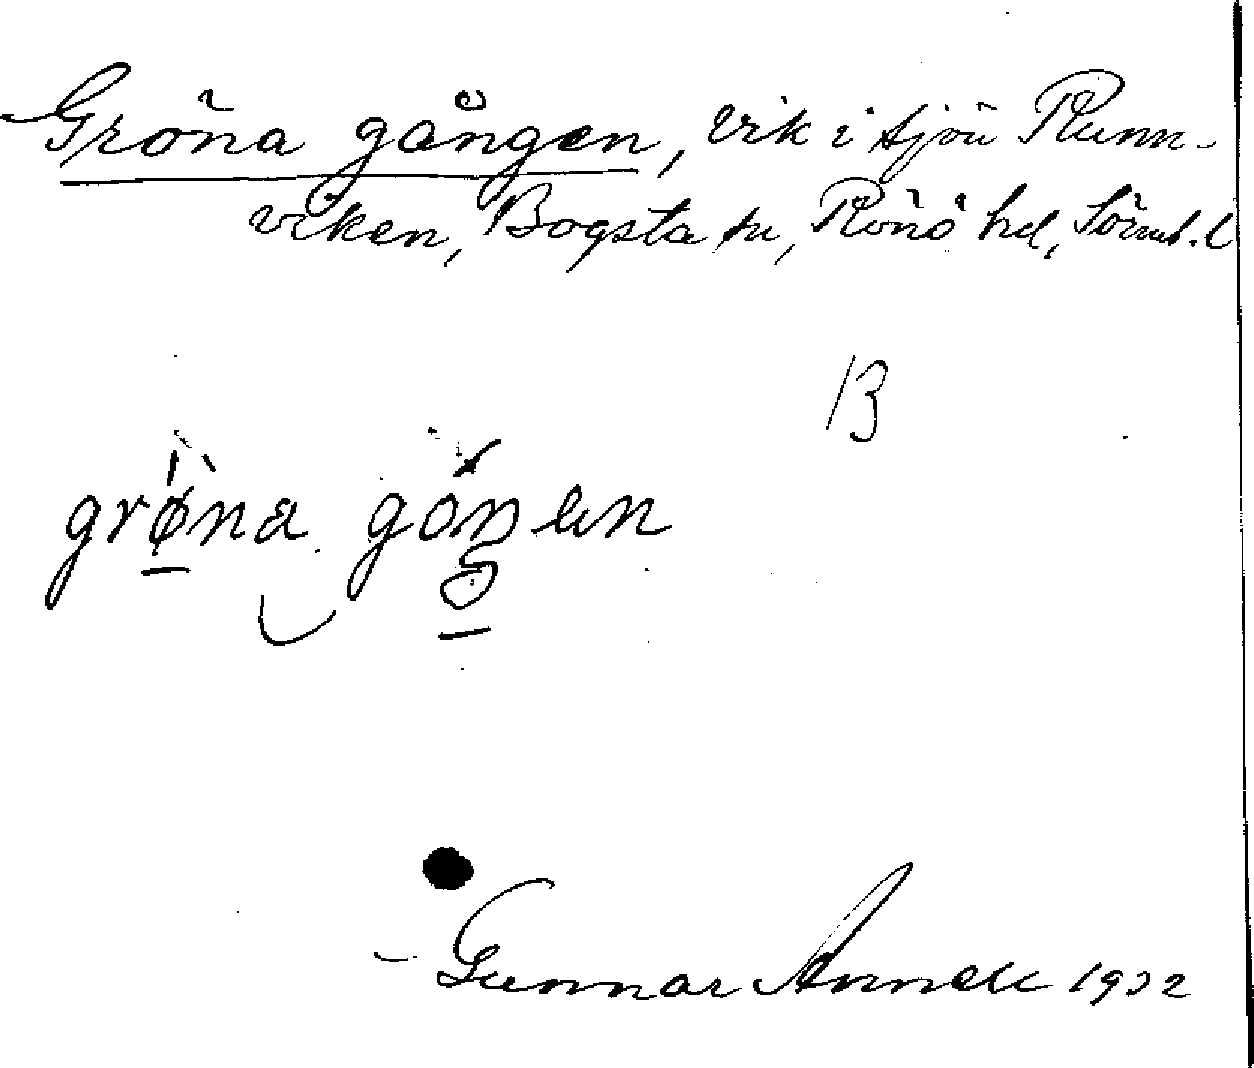 Gröna gången, vik i sjön Runn-
viken, Bogsta sn, Rönö hd, Sörml. l
B
grø̀na góŋen
Gunnar Annell 1932